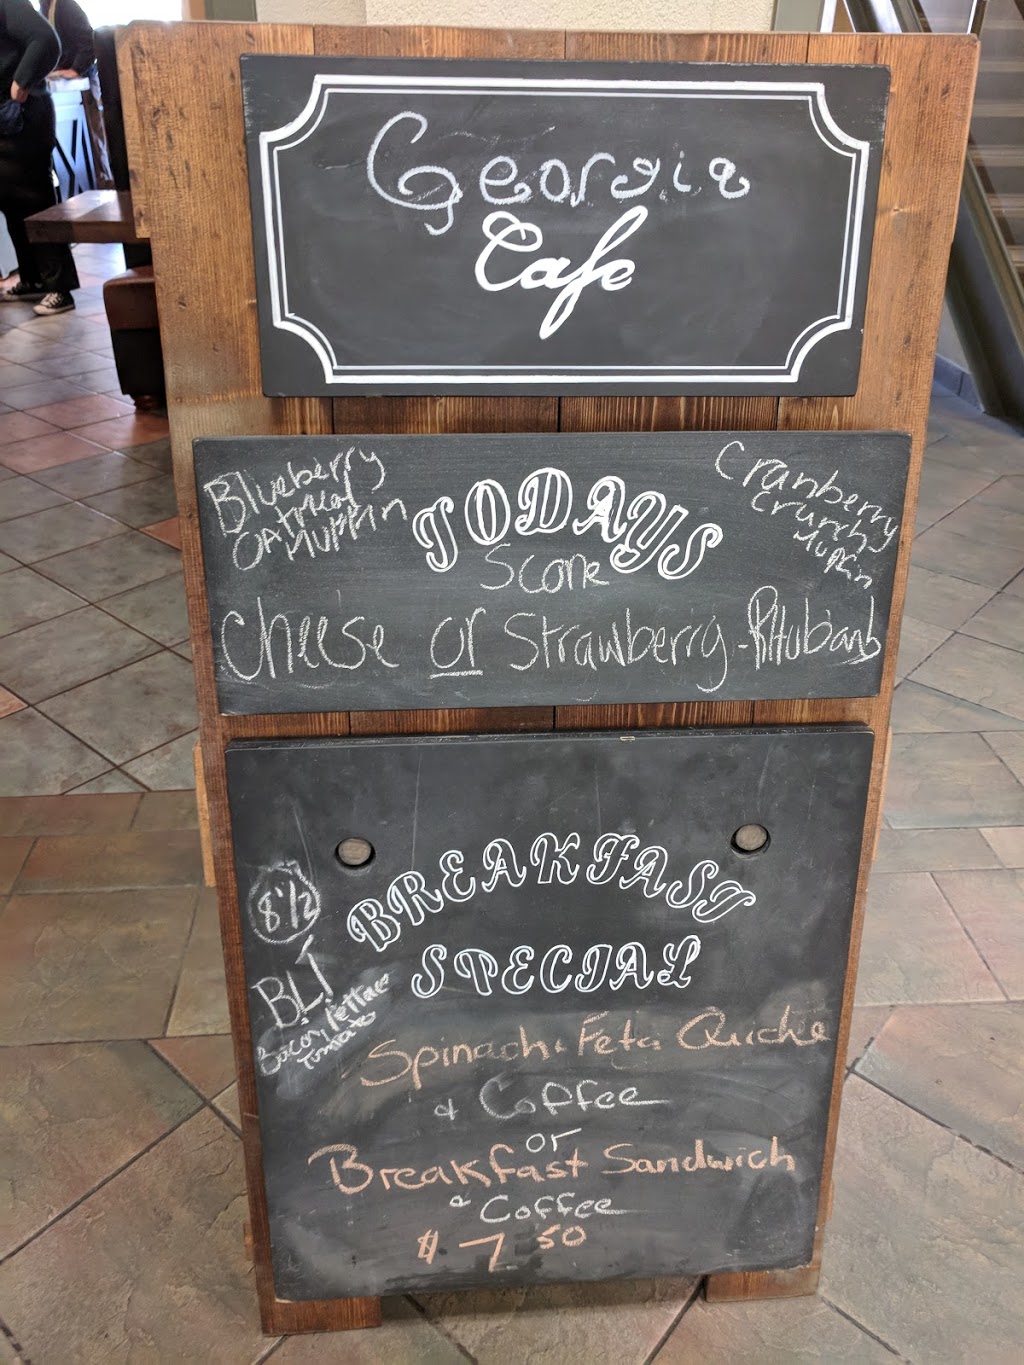 Georgia
Cafe
Blueberry
Oatmeal
Muffin
TODAYS
Cranberry
Crunch
Mufkin
Scone
Cheese or Strawberry-Rhubarb
8 1/2
BLT
Bacon, lettace
Tomato
BREAKFAST
SPECIAL
Spinach & Feta Quiche
& Coffee
or
Breakfast Sandwich
& Coffee
$ 7 50